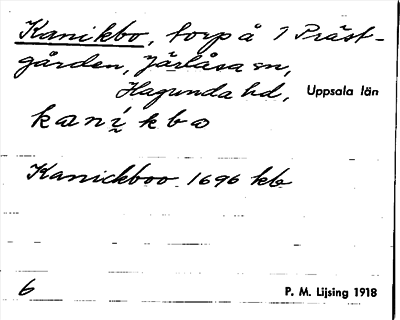 Kanikbo, torp å 1 Präst-
gården, Järlåsa sn,
Hagunda hd, Uppsala län
kanikbo
Kanickboo 1696 kb
6 P. M. Lijsing 1918